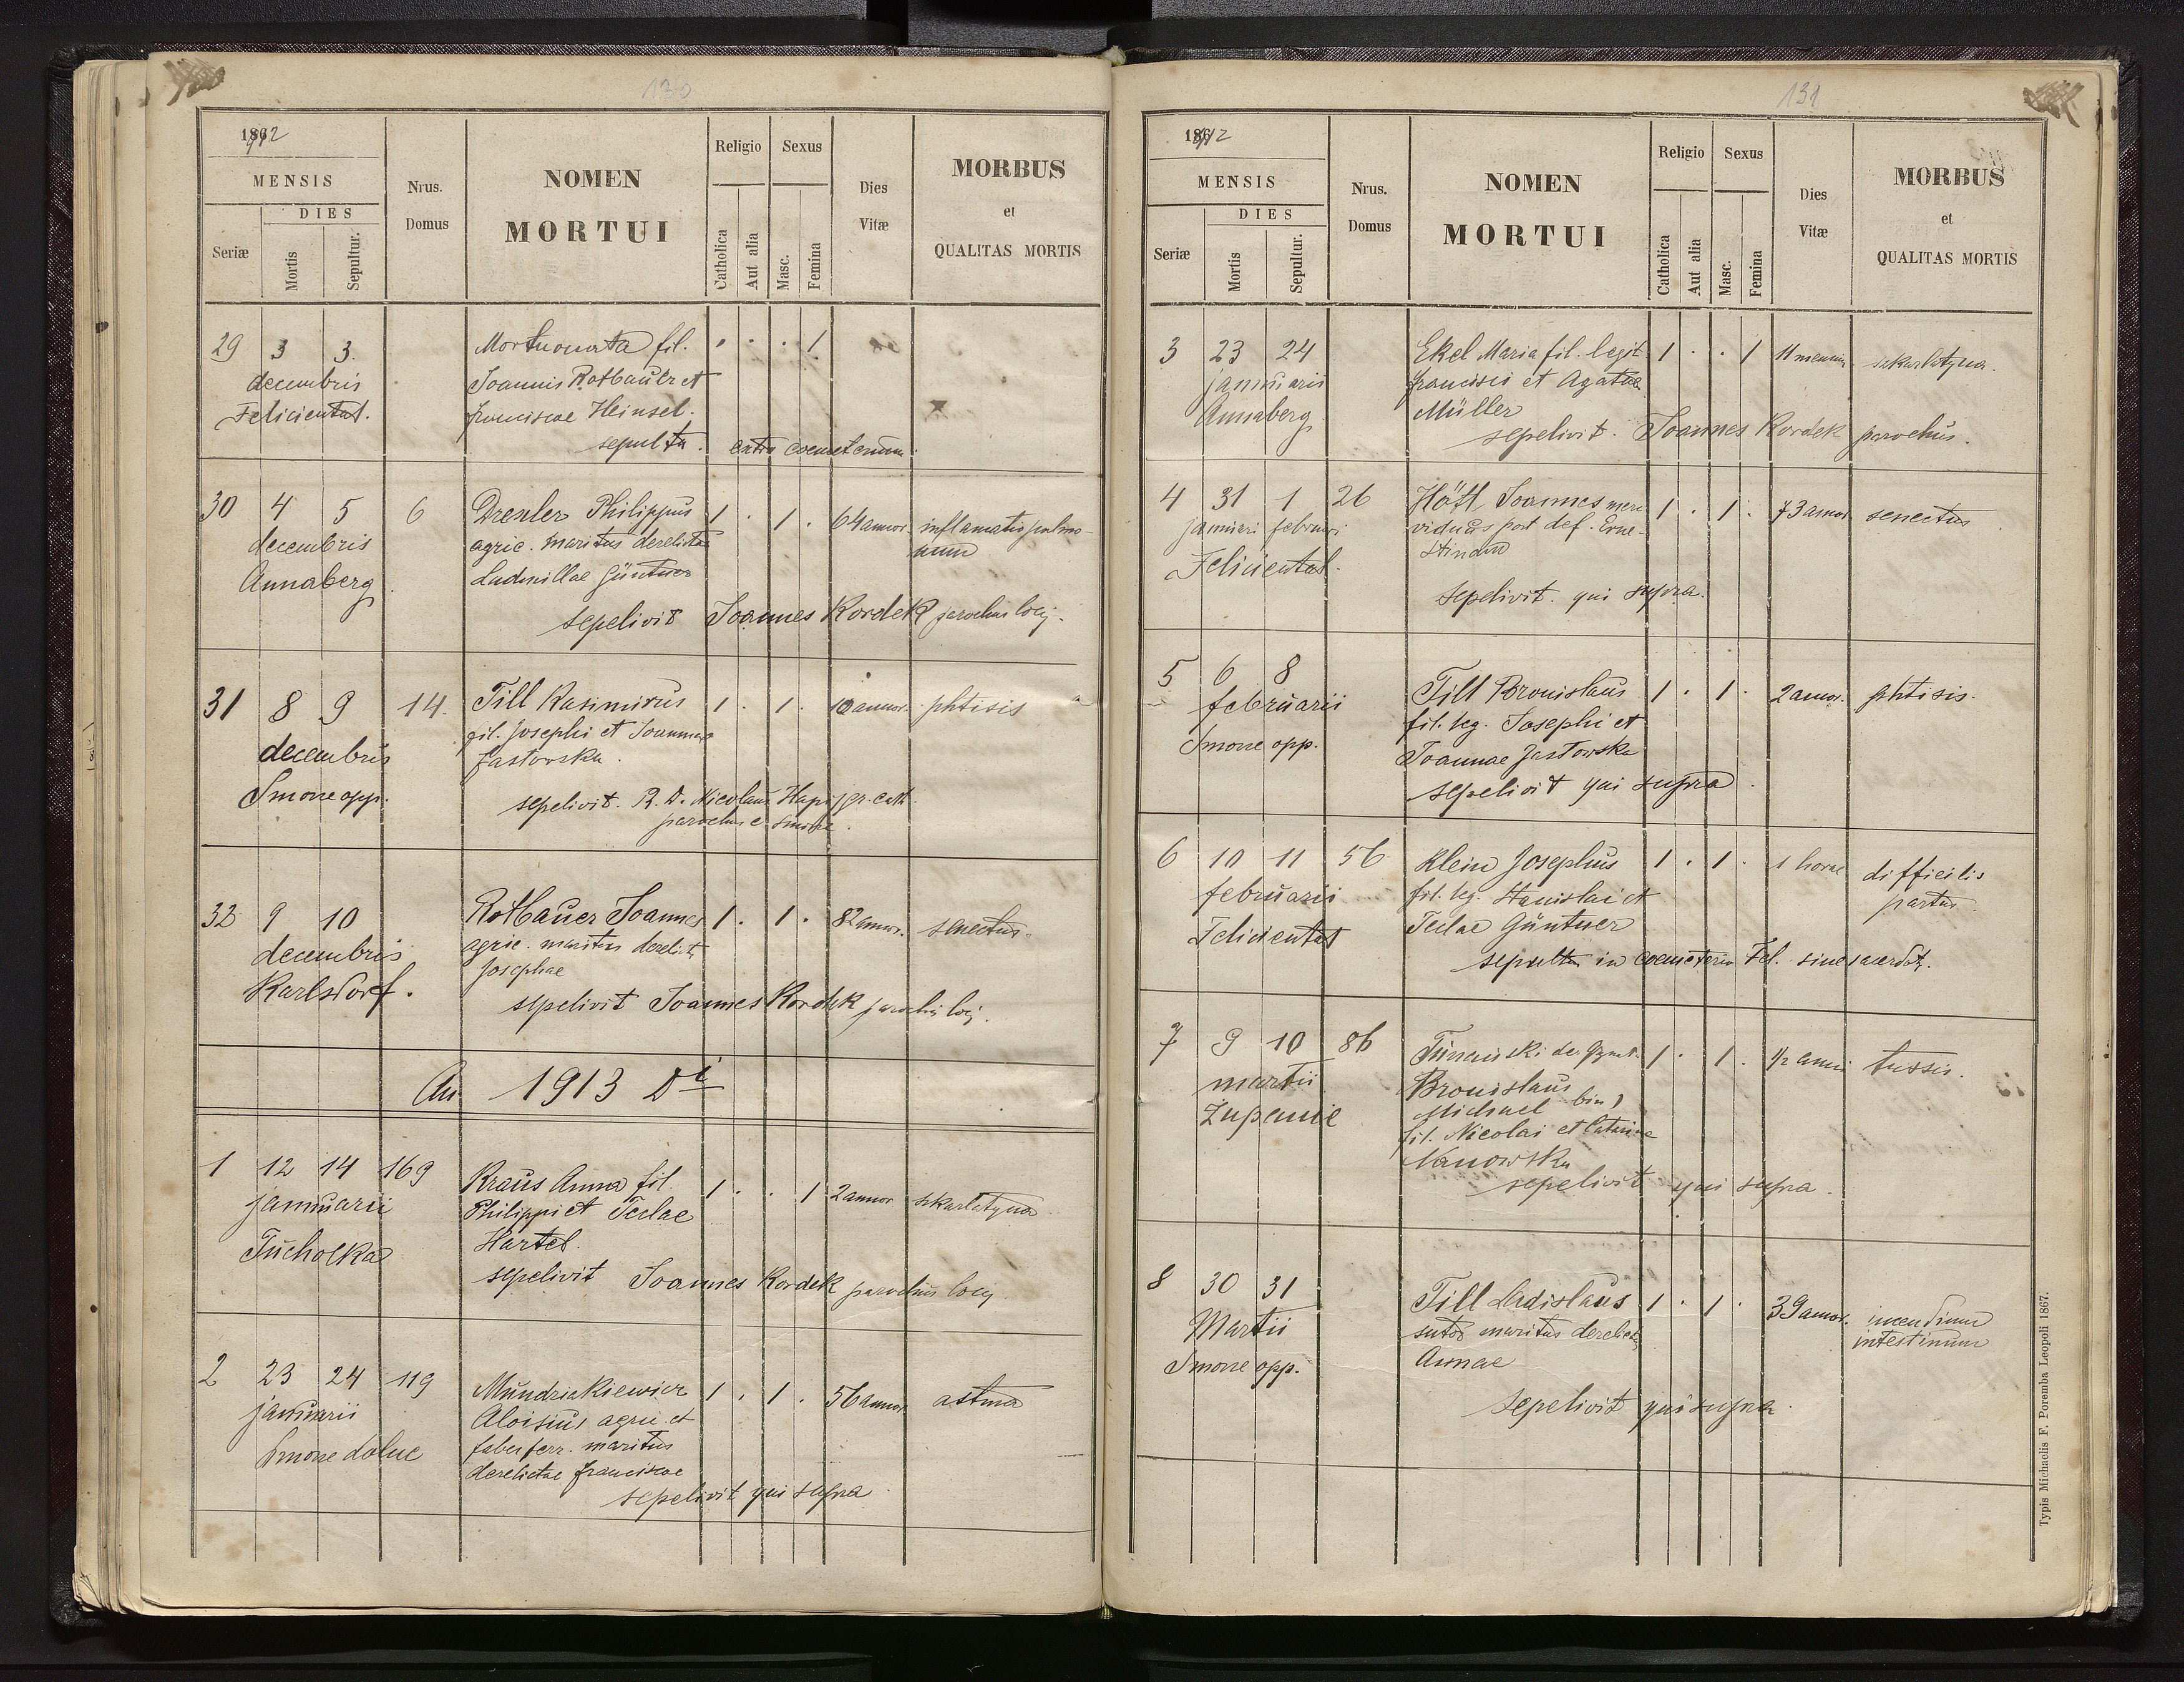 130
1912
MENSIS
DIES
Seriæ
Mortis
Sepultur.
Nrus.
Domus
NOMEN
MORTUI
Religio
Sexus
Catholica
Aut alia
Masc.
Femina
Dies
Vitæ
MORBUS
et
QUALITAS MORTIS
29 3 3. Mortuonata fil. . . . 1
decembris Joannis Rotbauer et
Felicienthal. franciscae Heinsel.
sepulta. extra coemeterium
30 4 5 6 Drexler Philippus 1 . 1 . 64 annor. inflamatio pulmo-
decembris agric. maritus derelictae num
Annaberg. Ludmillae Güntner
sepelivit Joannes Kordek parochus loci.
31 8 9 14. Till Kasimirus 1 . 1 . 10 annor. phtisis
decembris fil. Josephi et Joannae
Smorze opp. Jastorska.
sepelivit. R. D. Nicolaus gr. cath.
parochus e Smorze.
32 9 10 Rotbauer Joannes 1 . 1 . 82 annor. senectus.
decembris agric. maritus derelictae
Karlsdorf. Josephae
sepelivit Joannes Kordek parochus loci.
An 1913 Di
1 12 14 169 Kraus Anna fil. 1 . . 1 2 annor szkarlatyna
januarii Philippi et Teclae
Tucholka Hartel.
sepelivit Joannes Kordek parochus loci
2 23 24 119 Mundziakiewicz 1 . 1 . 56 annor astma
januarii Aloisius agric. et
Smorze dolne faber ferr. maritus
derelictae franciscae
sepelivit qui supra.
131
1912
MENSIS
DIES
Seriæ
Mortis
Sepultur.
Nrus.
Domus
NOMEN
MORTUI
Religio
Sexus
Catholica
Aut alia
Masc.
Femina
Dies
Vitæ
MORBUS
et
QUALITAS MORTIS
3 23 24 Ekel Maria fil. legit 1 . . 1 11 mensium szkarlatyna.
januarii francisci et Agatae
Annaberg. Müller
sepelivit. Joannes Kordek parochus.
4 31 1 26 Hött Joannes 1 . 1 . 73 annor senectus
januari februari viduus post def. Erne-
Felicienthal. stinam
sepelivit. qui supra.
5 6 8 Till Bronislaus 1 . 1 . 2 annor. phtisis.
februarii fil. leg. Josephi et
Smorze opp. Joannae Jastorska
sepelivit qui supra.
6 10 11 56 Klein Josephus 1 . 1 . 1 horae difficilis
februarii fil. leg. Stanislai et partus
Felicienthal Teclae Güntner
sepultus in coemeterio Fel. sine sacerdot.
7 9 10 86 1 . 1 . 1/2 anni tussis.
martii Bronislaus
Zupanie Michael bin)
fil. Nicolai et Catarinae
Nanowska
sepelivit qui supra.
8 30 31 Till Ladislaus 1 . 1 . 39 annor.
Martii sutor maritus derelictae intestinum
Smorze opp. Annae
sepelivit qui supra.
Typis Michaelis F. Poremba Leopoli 1867.